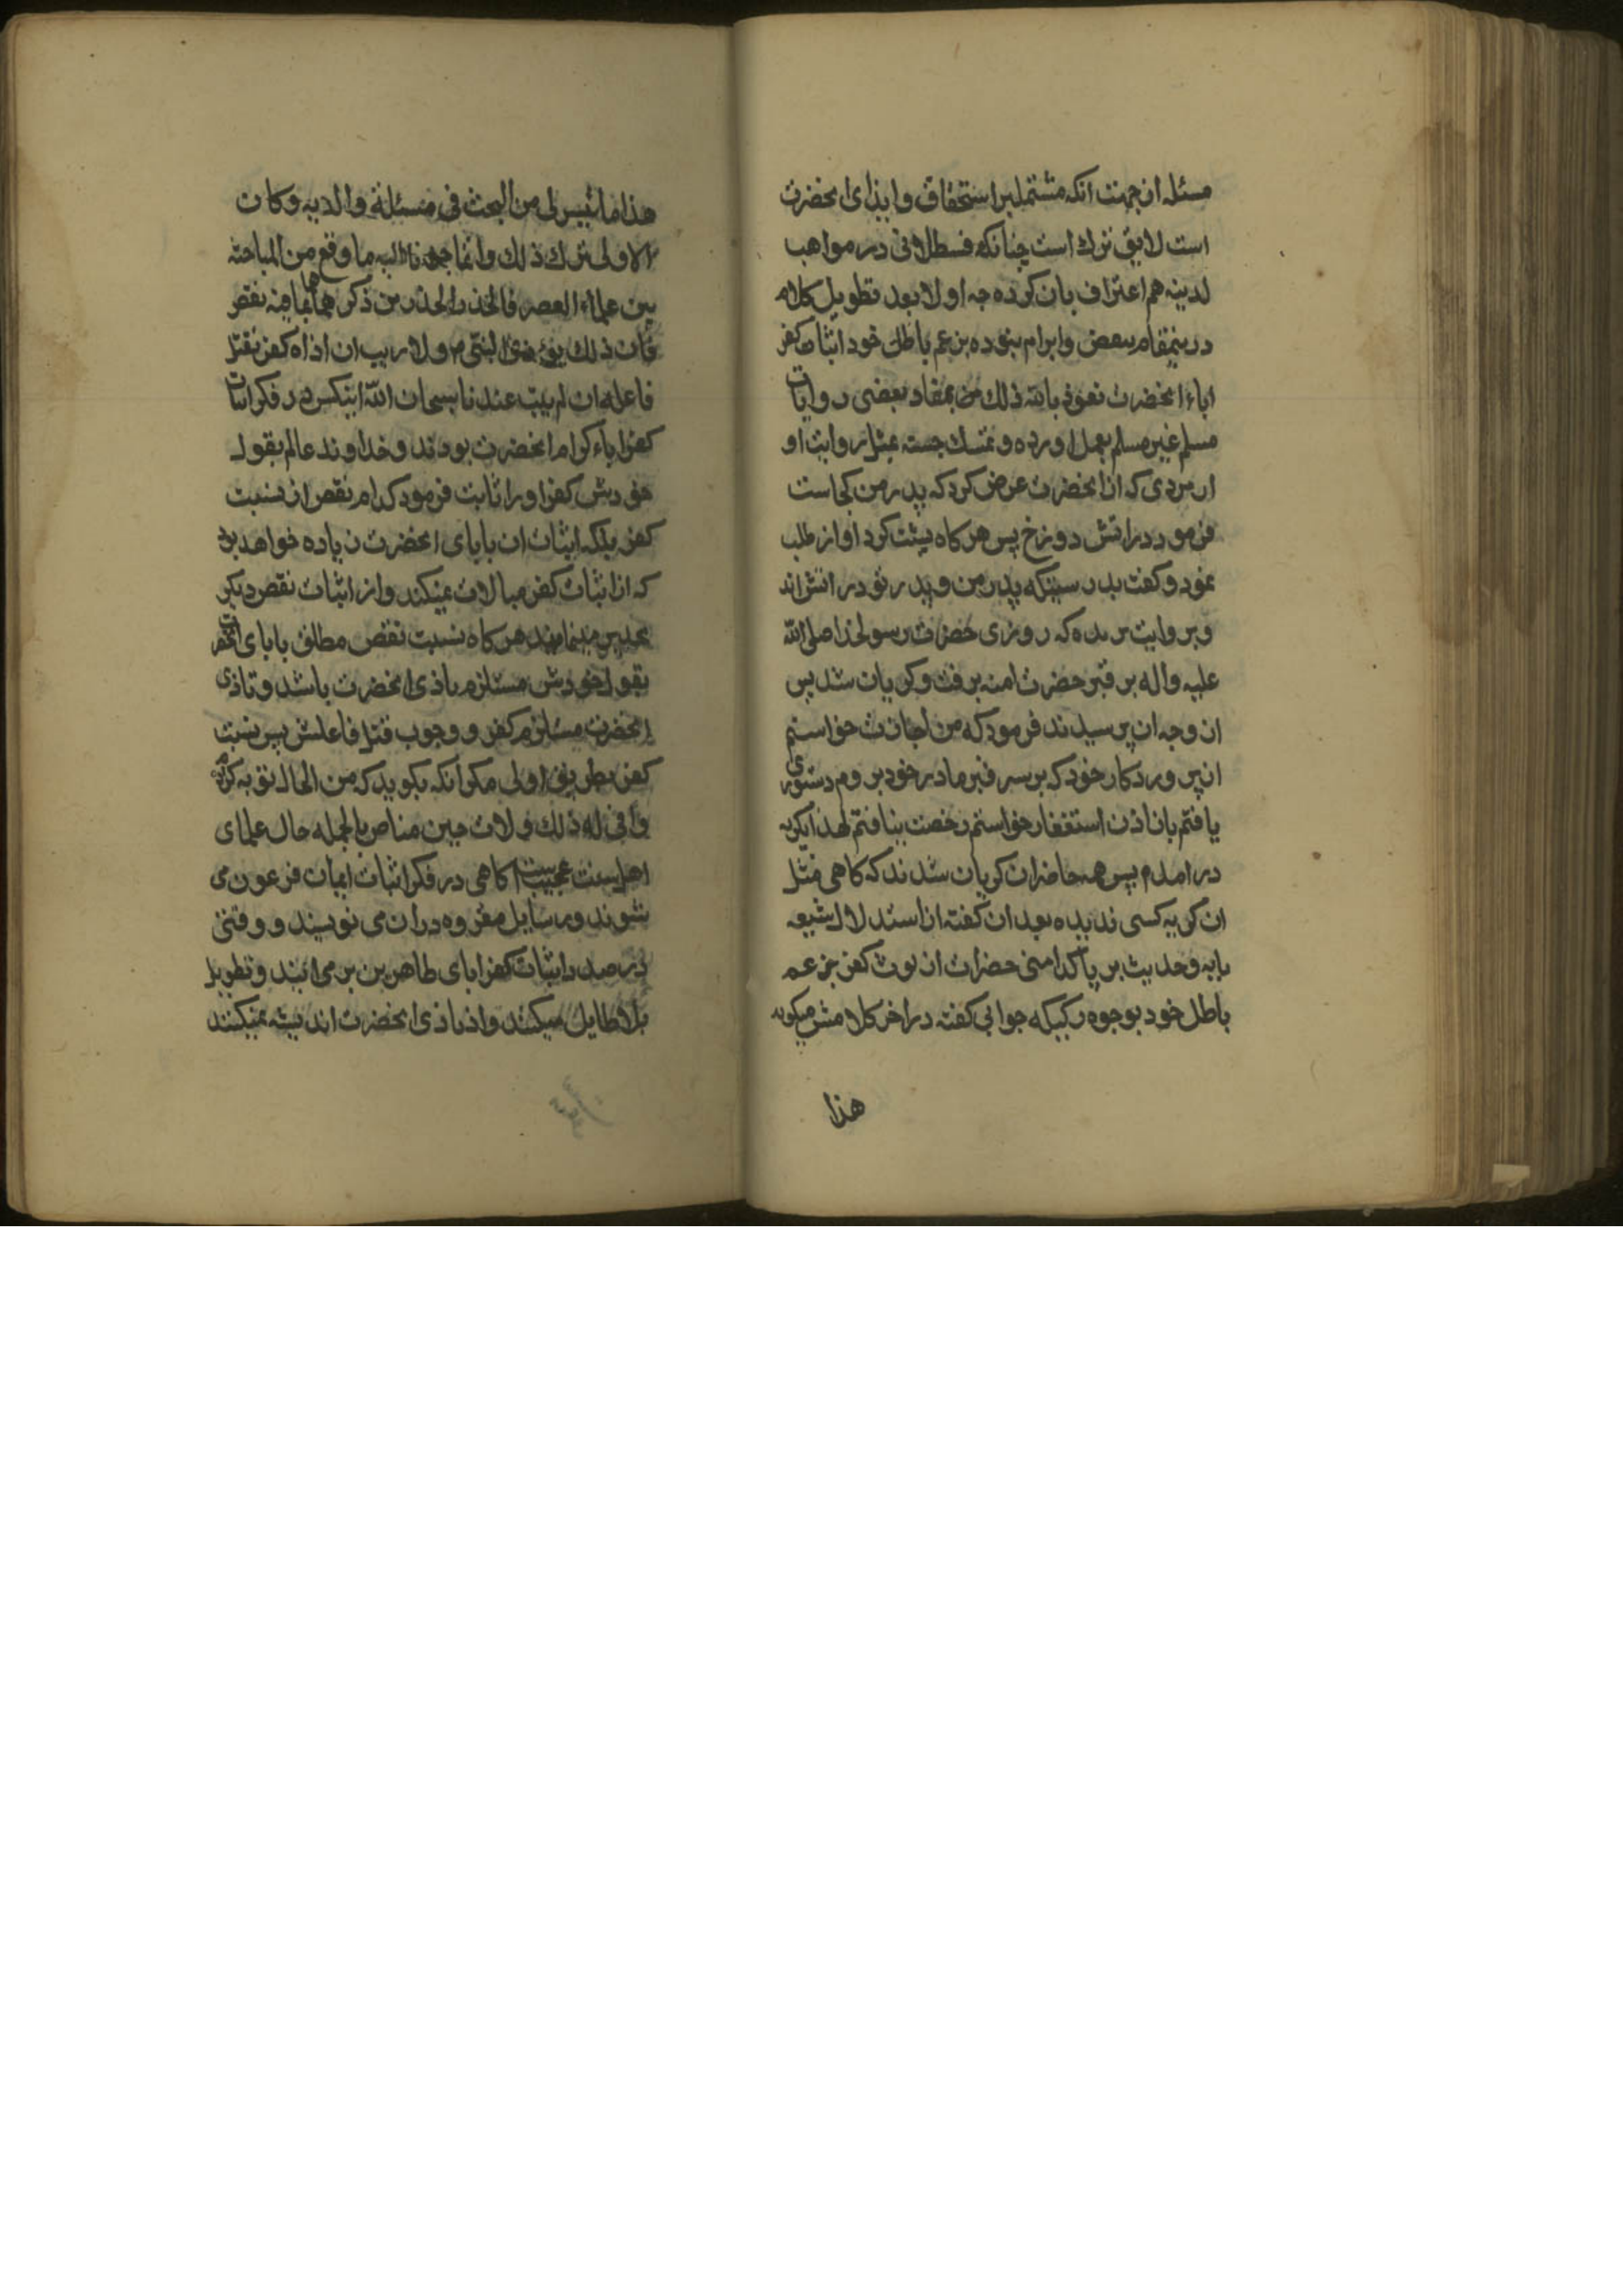 مسئله از جهت انکه مشتمل بر استخفاف و ایذای انحضرت
است لایق ترک است چنانکه قسطلانی در مواهب
لدینه هم اعتراف بان کرده چه اولا بعد تطویل کلام
درینمقام ببعض و ابرام نموده بزعم باطل خود اثبات کفر
اباء انحضرت نعوذ بالله ذلک من بمفاد بعضی روایات
مسلم غیر مسلم بعمل اورده و تمسک جسته بمثل روایت او
از مردی که از انحضرت عرض کرد که پدر من کجاست
فرمود در اتش دوزخ پس هرگاه پشت کرد او از طلب
نمود و کفت بدرسیتکه پدر من و پدر تو در اتش اند
و بروایت بریده که روزی حضرت رسولخدا صلی الله
علیه و اله بر قبر حضرت امنه برفت و کریان شد پس
از وجه ان پرسیدند فرمود که من اجازت خواستم
از پروردکار خود که بر سر قبر مادر خود بروم دستوری
یافتم بان اذن استغفار خواستم رخصت نیافتم لهذا بکریه
در امدم پس همه حاضران کریان شدند که کاهی مثل
ان کریه کسی ندیده بعد ان کفته از استدلال شیعه
بایه و حدیث بر پاکدامنی حضرات از لوث کفر بزعم
باطل خود بوجوه رکیکه جوابی کفته در اخر کلامش میکوید
هذا
هذا ما تیسر لی من البحث فی مسئلة والدیه و کان
الاولی ترک ذلک و انما الیه ما وقع من المباحثه
بین علماء العصر فالحذر الحذر من ذکرهما بما فیه نقص
فان ذلک یوذی النبی م و لا ریب ان اذاه کفر یقتل
فاعله ان لم یتب عندنا سبحان الله اینکس در فکر اثبات
کفر اباء کرام انحضرت بودند و خداوند عالم بقول
خودش کفر او را ثابت فرمود کدام نقص از نسبت
کفر بلکه اثبات ان بابای انحضرت زیاده خواهد بود
که از اثبات کفر مبالات نمیکند و از اثبات نقص دیکر
تحذیر مینمایند هرکاه نسبت نقص مطلق بابای انحضرت
بقول خودش مستلزم تاذی انحضرت باشد و تاذی
انحضرت مستلزم کفر و وجوب قتل فاعلش پس نسبت
کفر بطریق اولی مکر انکه بکوید که من الحال توبه کردم
و انی له ذلک و لات حین مناص بالجمله حال علمای
اهل سنت عجیبست کاهی در فکر اثبات ایمان فرعون می
شوند و رسایل مفروه دران می نویسند و وقتی
در صدد اثبات کفر ابای طاهرین بر می ایند و تطویل
بلا طایل میکنند و از تاذی انحضرت اندیشه نمیکنند